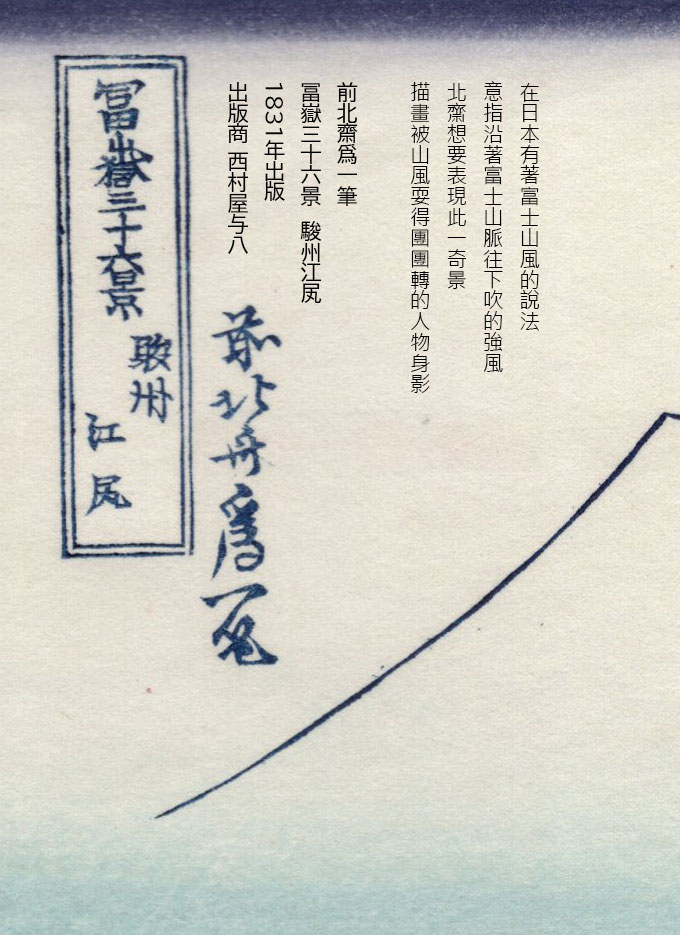 在日本有著富士山風的說法
意指沿著富士山脈往下吹的強風
北齋想要表現此一奇景
描畫被山風耍得團團轉的人物身影
前北齋爲一筆
冨嶽三十六景 駿州江尻
1831年出版
出版商 西村屋与八
前北斎爲一笔
冨嶽三十六景
駿州
江尻